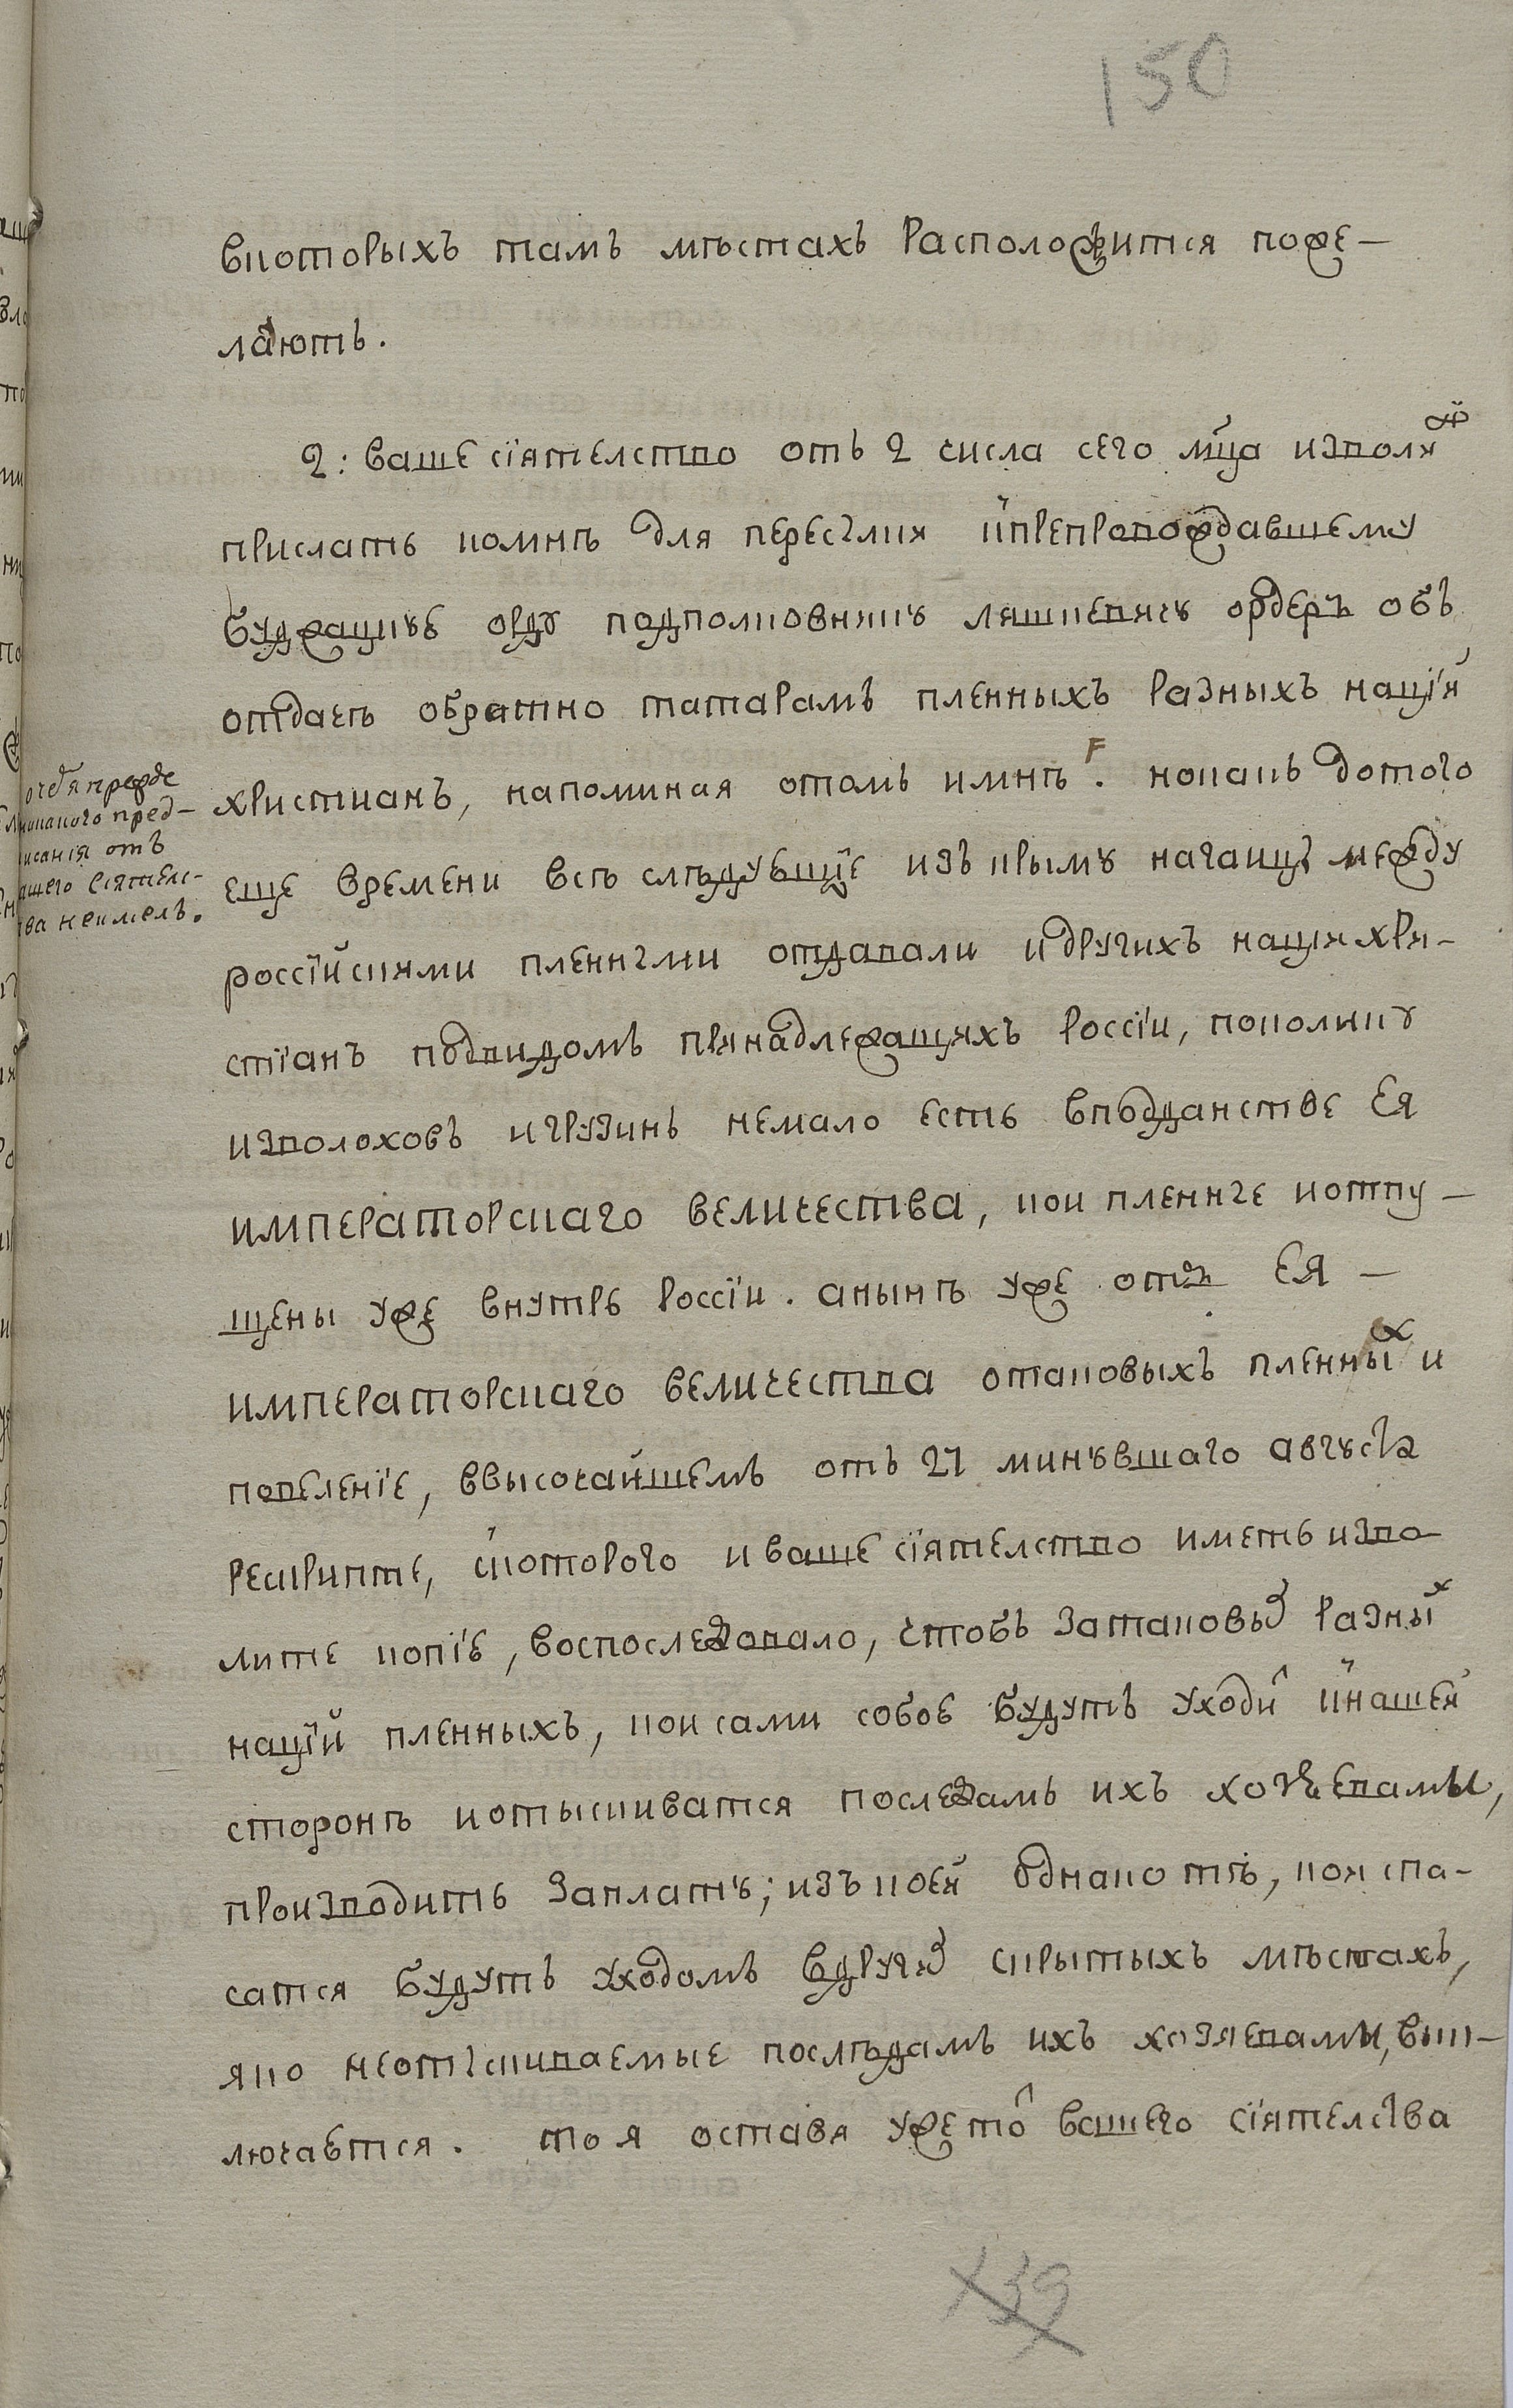 150
вкоторыхъ тамъ мѣстахъ расположится поже-
лаютъ.
2: ваше сіятелство отъ 2 числа сего мца изволи
прислать комнѣ для пересылки ипрепровождавшему
буджацкую орду подполковнику ляшкевичу ордеръ объ
отдачѣ обратно татарамъ пленныхъ разныхъ націй
христианъ, напоминая отомъ имнѣ. нокакъ дотого
еще времени всѣ слѣдующіе изъ крыму нагаицы между
россійскими пленными отдавали идругихъ нація хри-
стіанъ подвидомъ принадлежащихъ россіи, поколику
изволоховъ игрузинъ немало есть вподданстве ея
императорскаго величества, кои пленные иотпу-
щены уже внутрь россіи. анынѣ уже отъ ея -
императорскаго величества отаковыхъ пленных и
повеленіе, ввысочайшемъ отъ 27 минувшаго августа
рескрипте, скоторого иваше сіятелство иметь изво-
лите копіе, воспоследовало, чтобъ затаковых разных
націй пленныхъ, кои сами собое будутъ уходи кнашей
сторонѣ иотыскиватся последамъ ихъ хозяевами,
производить заплату; изъ коей однако тѣ, кои спа-
сатся будутъ уходомъ вдругих скрытыхъ мѣстахъ,
яко неотыскиваемые послѣдамъ ихъ хозяевами, вык-
лючается. то я оставя уже то вашего сіятелства
очбя прежде
пред-
исанія отъ
ашего сіятелс-
тва неимелъ.
139